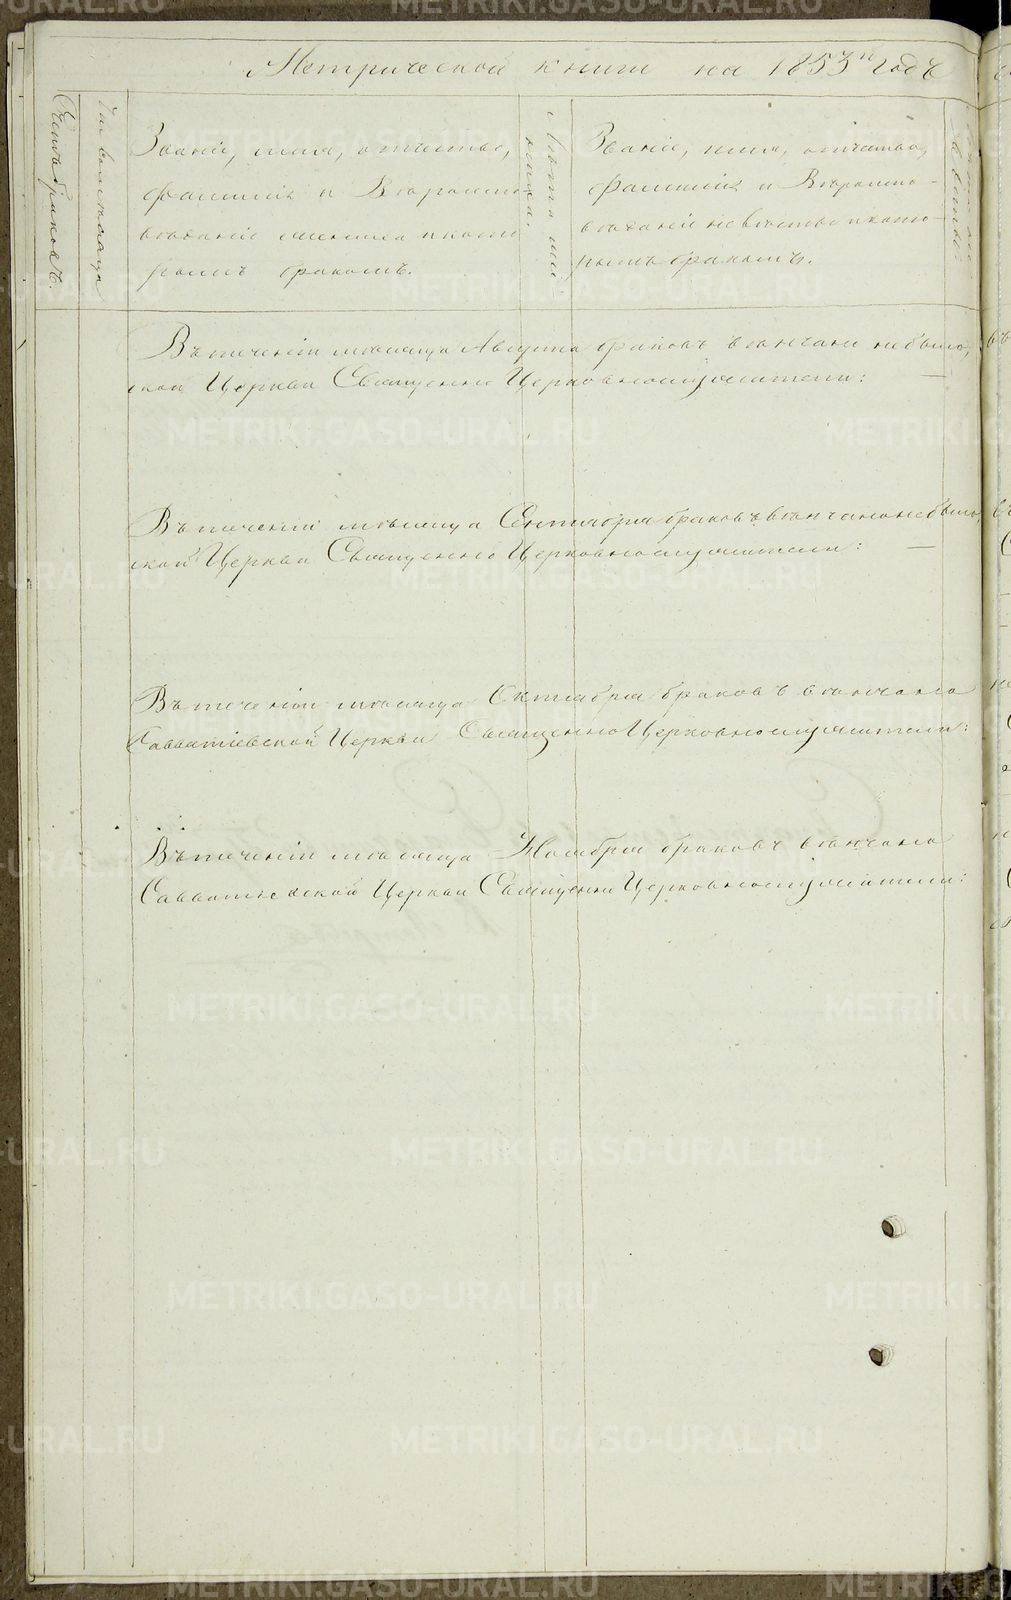 Метрической книги на 1853й годъ
Счетъ браковъ.
Число месяца
Званіе, имя, отчество,
фамилія и Вѣроиспо-
вѣданіе жениха и кото
рымъ бракомъ.
Лѣта же
ниха.
Званіе, имя, отчество,
фамилія и Вѣроиспо-
вѣданіе невѣсты и кото-
рымъ бракомъ.
невѣсты.
Въ теченіи мѣсяца Августа браковъ вѣнчано небыло,
ской Церкви Священно Церковнослужители: —
Въ теченіи мѣсяца Сентября браковъ вѣнчано небыло,
ской Церкви Священно Церковнослужители: —
Въ теченіи мѣсяца Октября браковъ вѣнчано
Савватіевской Церкви Священно Церковнослужители:
Въ теченіи мѣсяца Ноября браковъ вѣнчано
Савватіевской Церкви Священно Церковнослужители:
METRIKI.GASO-URAL.RU